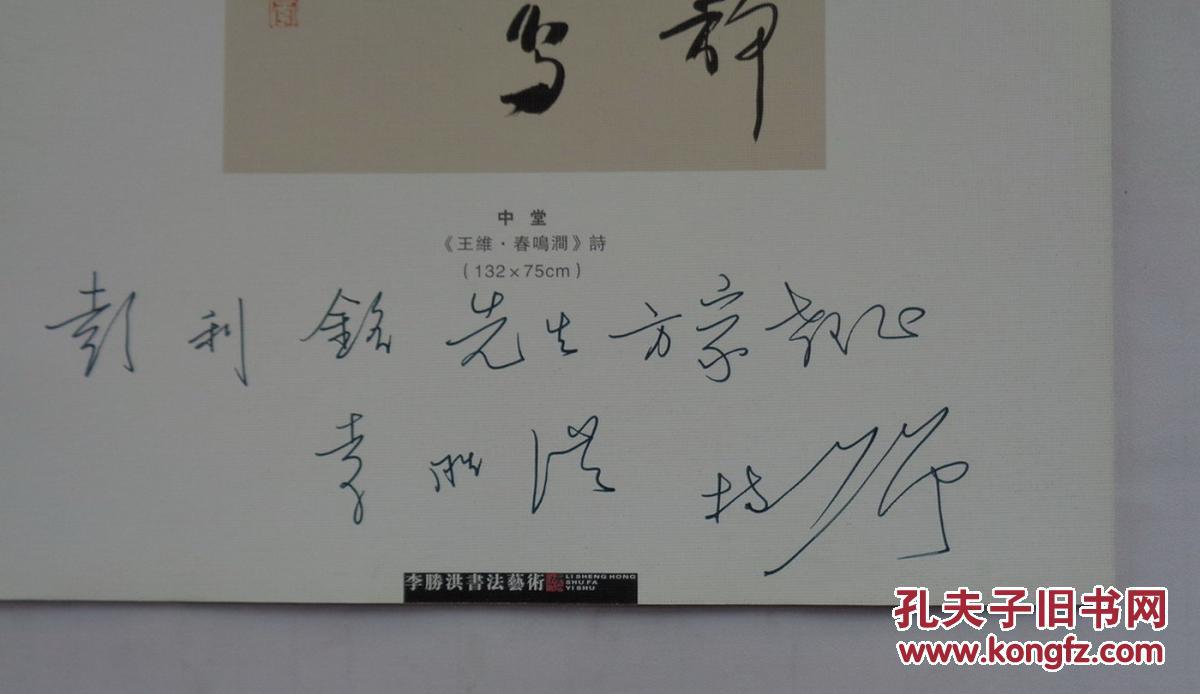 静
鸟
中 堂
《王維·春鳴澗》詩
(132×75cm)
彭利銘先生方家教正
李胜洪 持贈
李勝洪書法藝術
LI SHENG HONG
SHU FA
YI SHU
孔夫子旧书网
www.kongfz.com